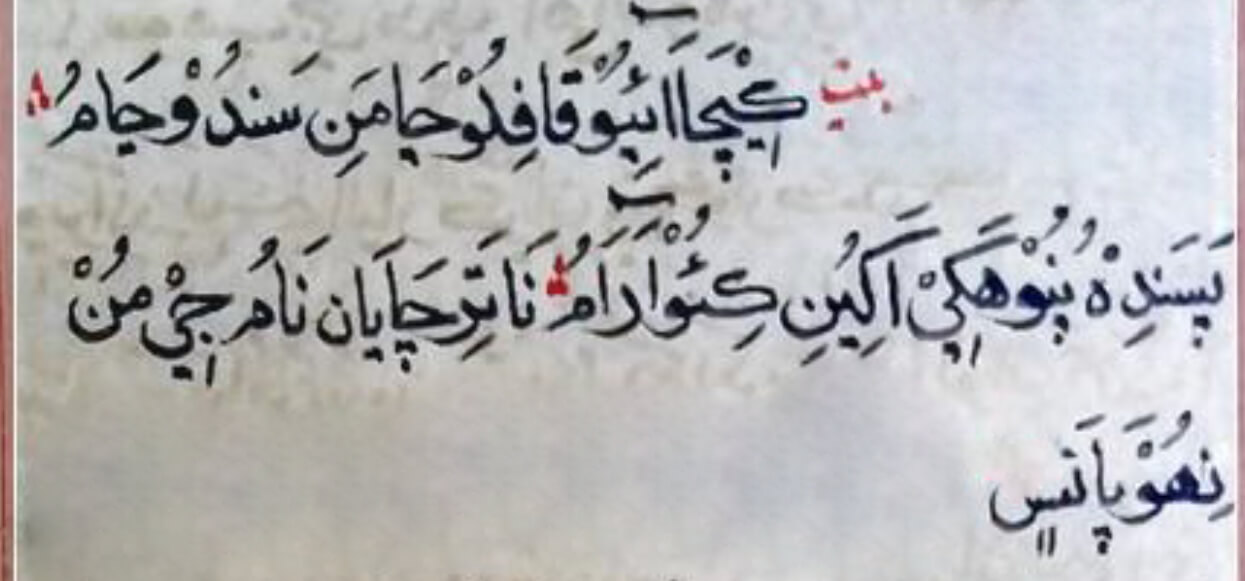 بيت كِيْچَا آئِيُوْ قَافِلُوْ جَا مَنِ سَندُوْ جَامُ
پَسَندِهْ پُنُوْهَكِيْ اَكِيُنِ كِئُوْ آرَامُ نَاتَرِ چَايَان نَامُ جِيْ مُنْ
نِهُوْ پَانَسٍ